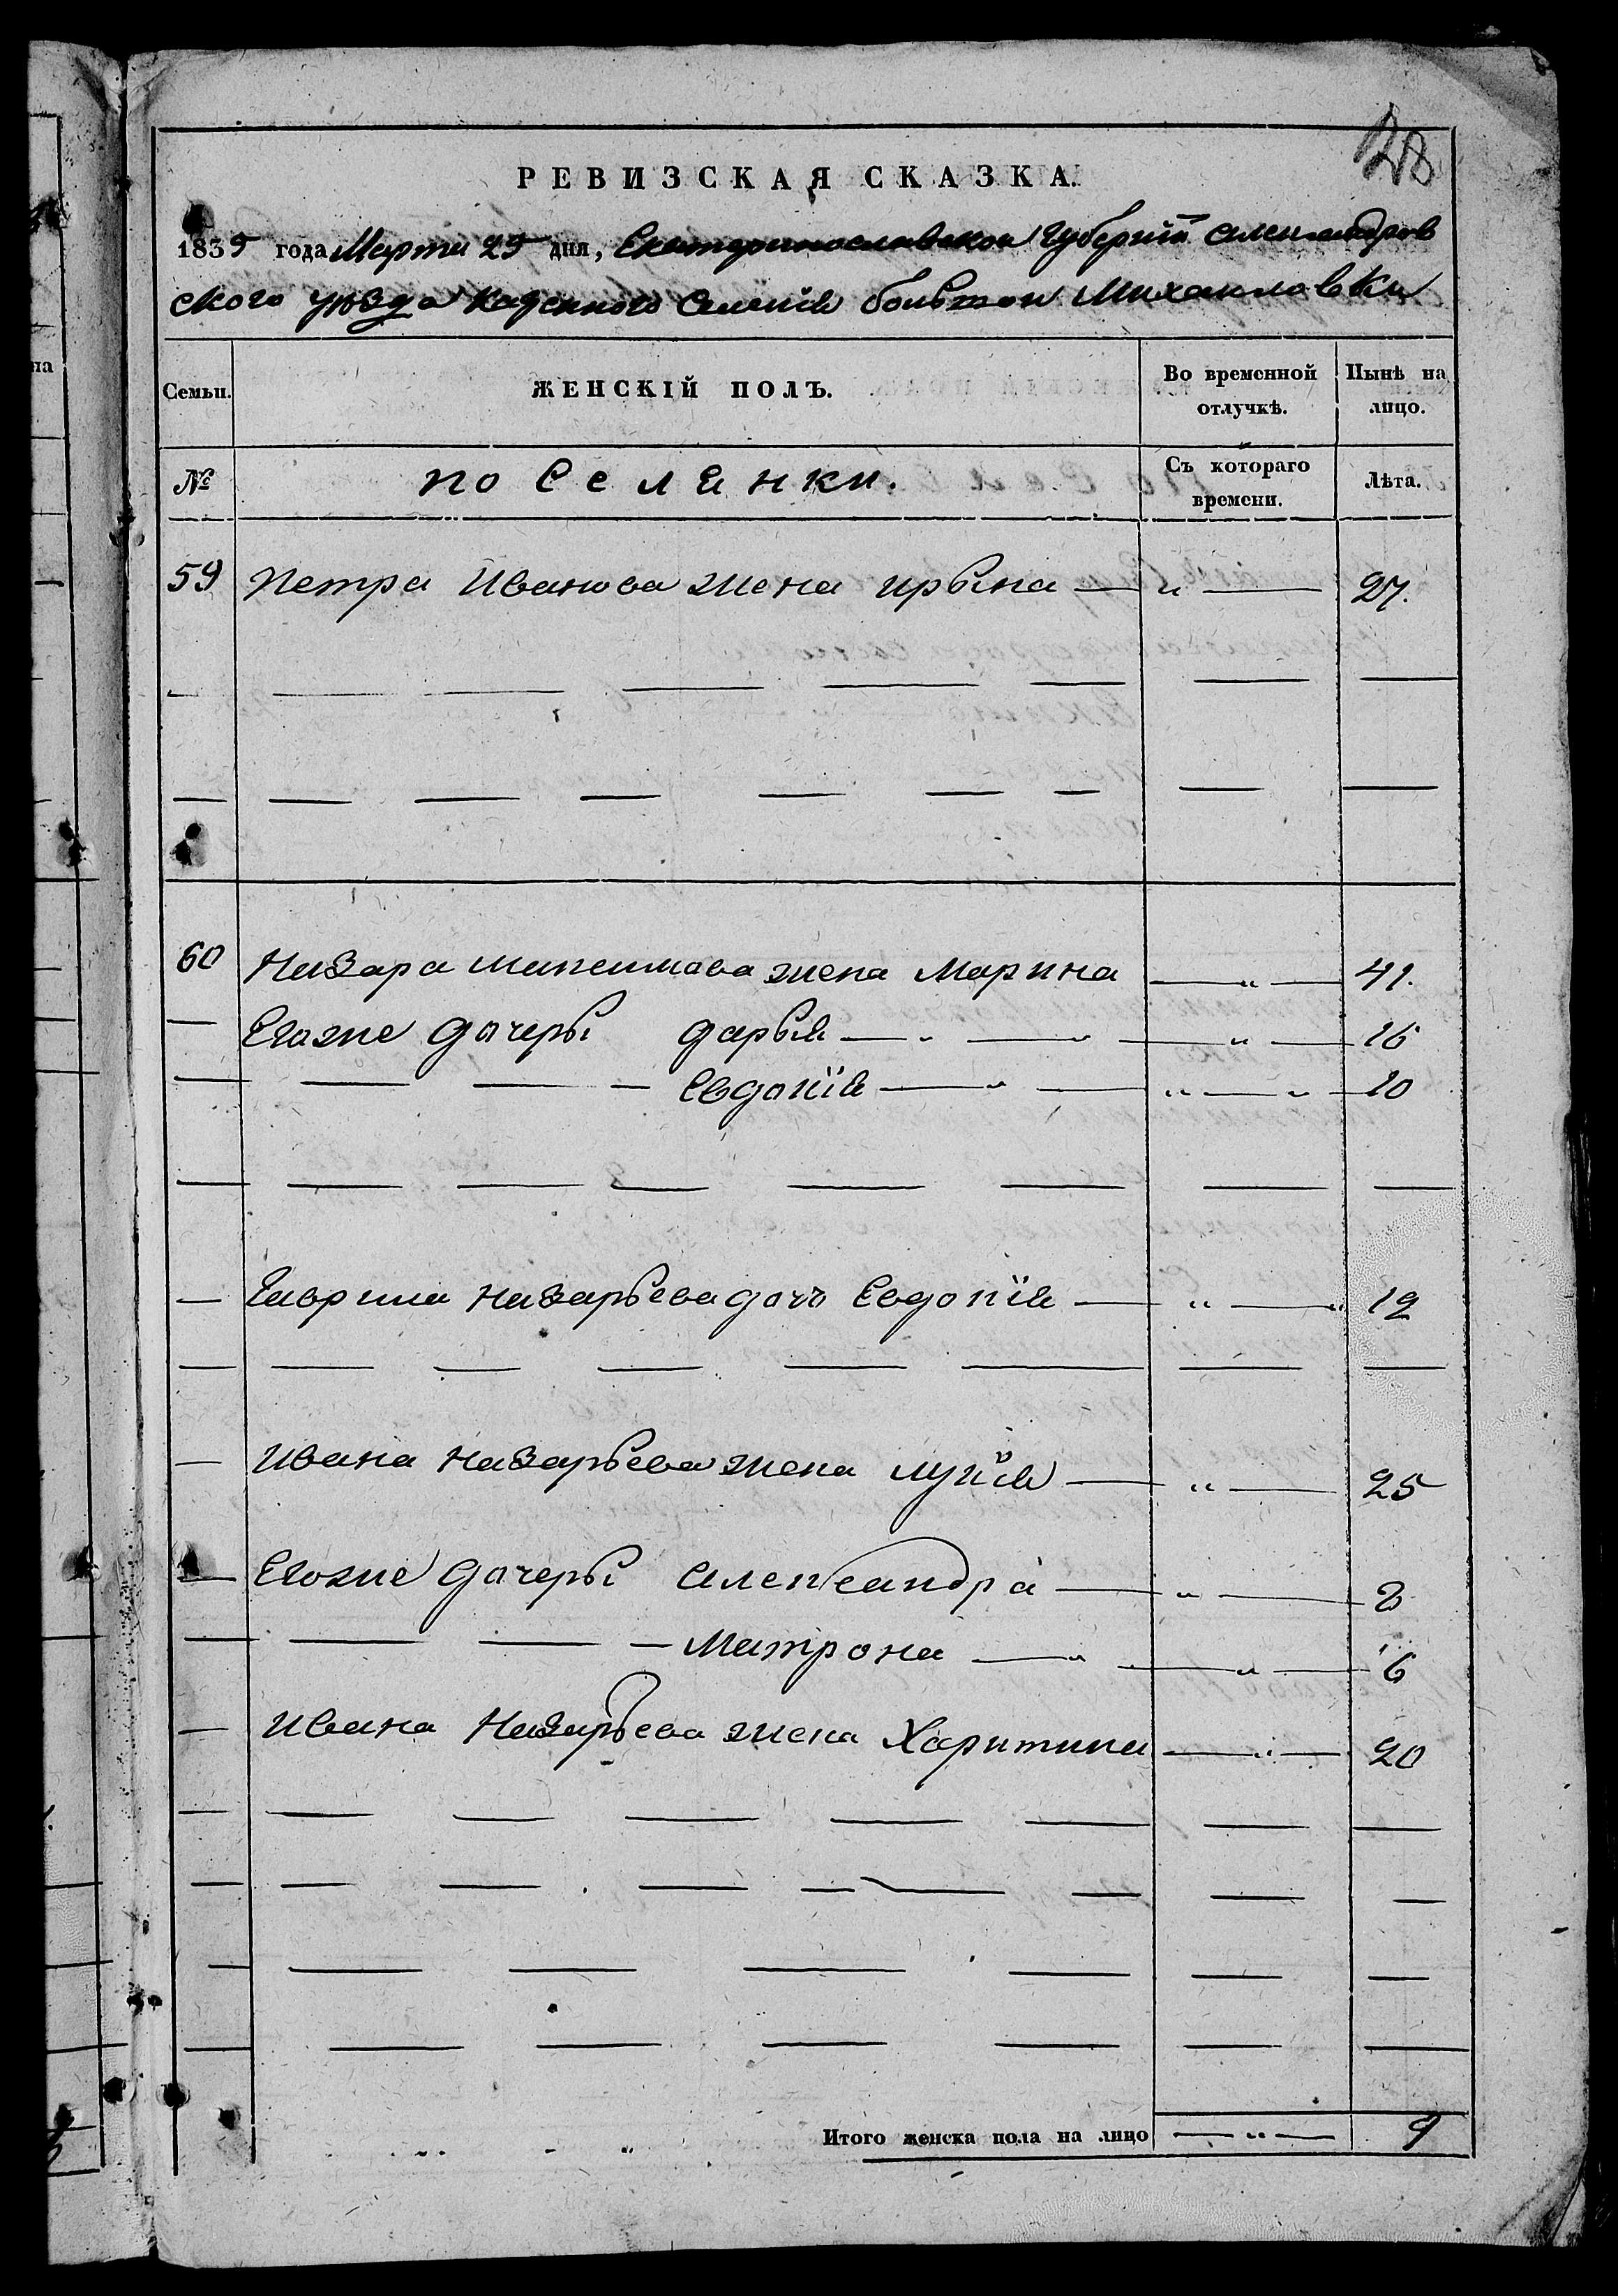 28
РЕВИЗСКАЯ СКАЗКА.
1835 года Марта 25 дня, Екатеринославской Губерніи Александров
ского уѣзда казенного Селенія большой Михайловки
Семьи. ЖЕНСКІЙ ПОЛЪ. Во временной отлучкѣ. Нынѣ на лицо.
№ поселянки. Съ котораго времени. Лѣта.
59 Петра Иванова жена Ирына — „ — 27.
60 Назара Максимова жена Марина — „ — 41.
— Егоже дочеры дарья — „ — „ — „ — 16
— — — — Евдокія — „ — „ — „ — 10
— Гаврила Назарьева дочь Евдокія — „ — „ 12
— Ивана Назарьева жена лукія — „ — 25
— Егоже дочеры Александра — „ — 8
— — — — Матрона — „ — „ — 6
— Ивана Назарьева жена Харитина — „ — 20
Итого женска пола на лицо — „ — 9